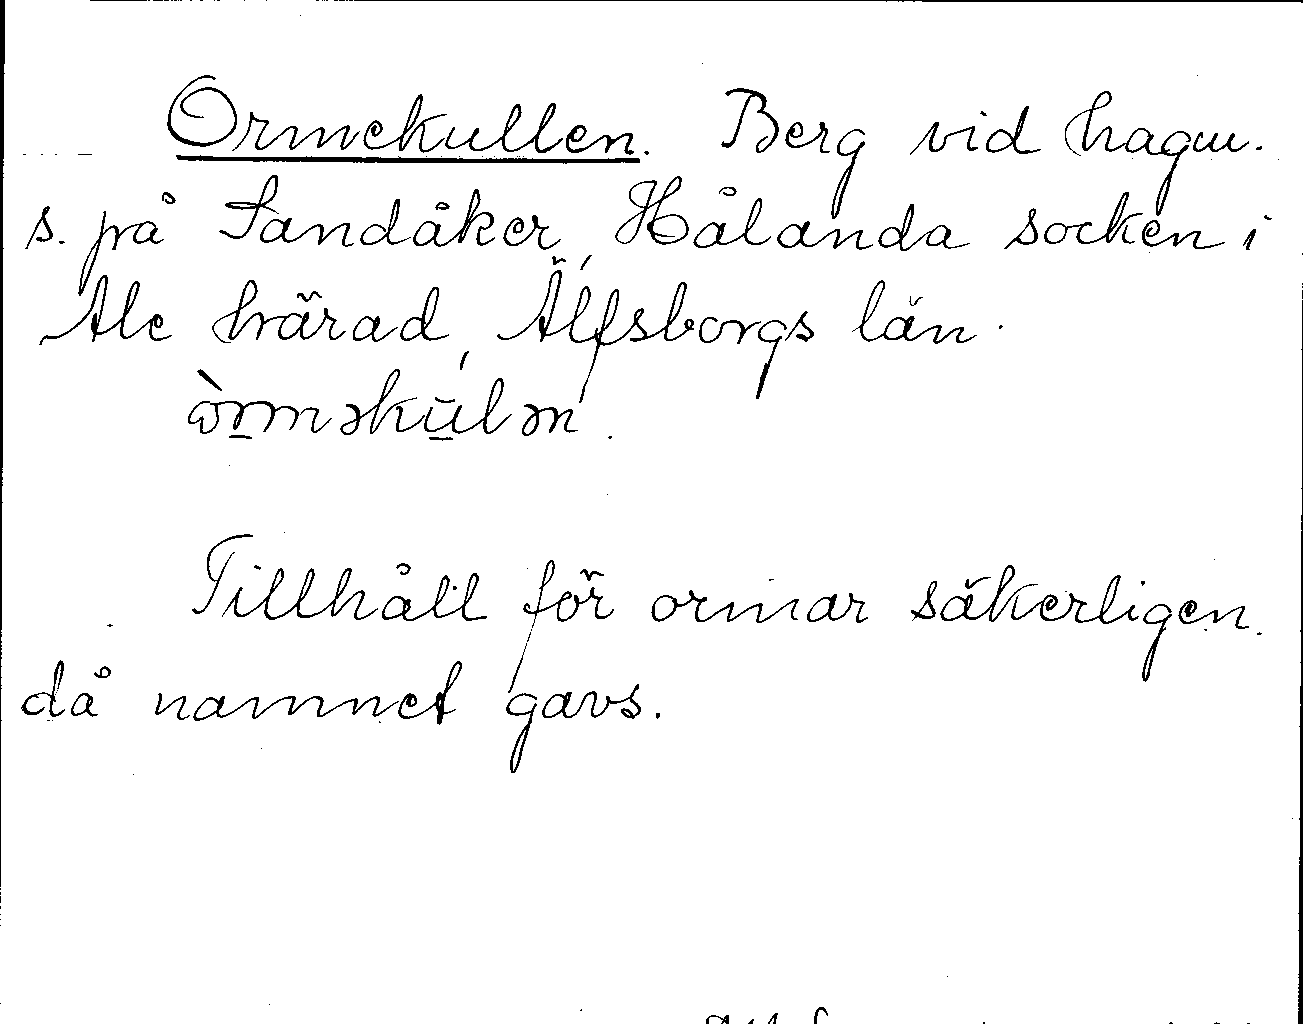 Ormekullen. Berg vid hagm.
s. på Sandåker, Hålanda socken i
Ale härad, Älfsborgs län.
Tillhåll för ormar säkerligen
då namnet gavs.